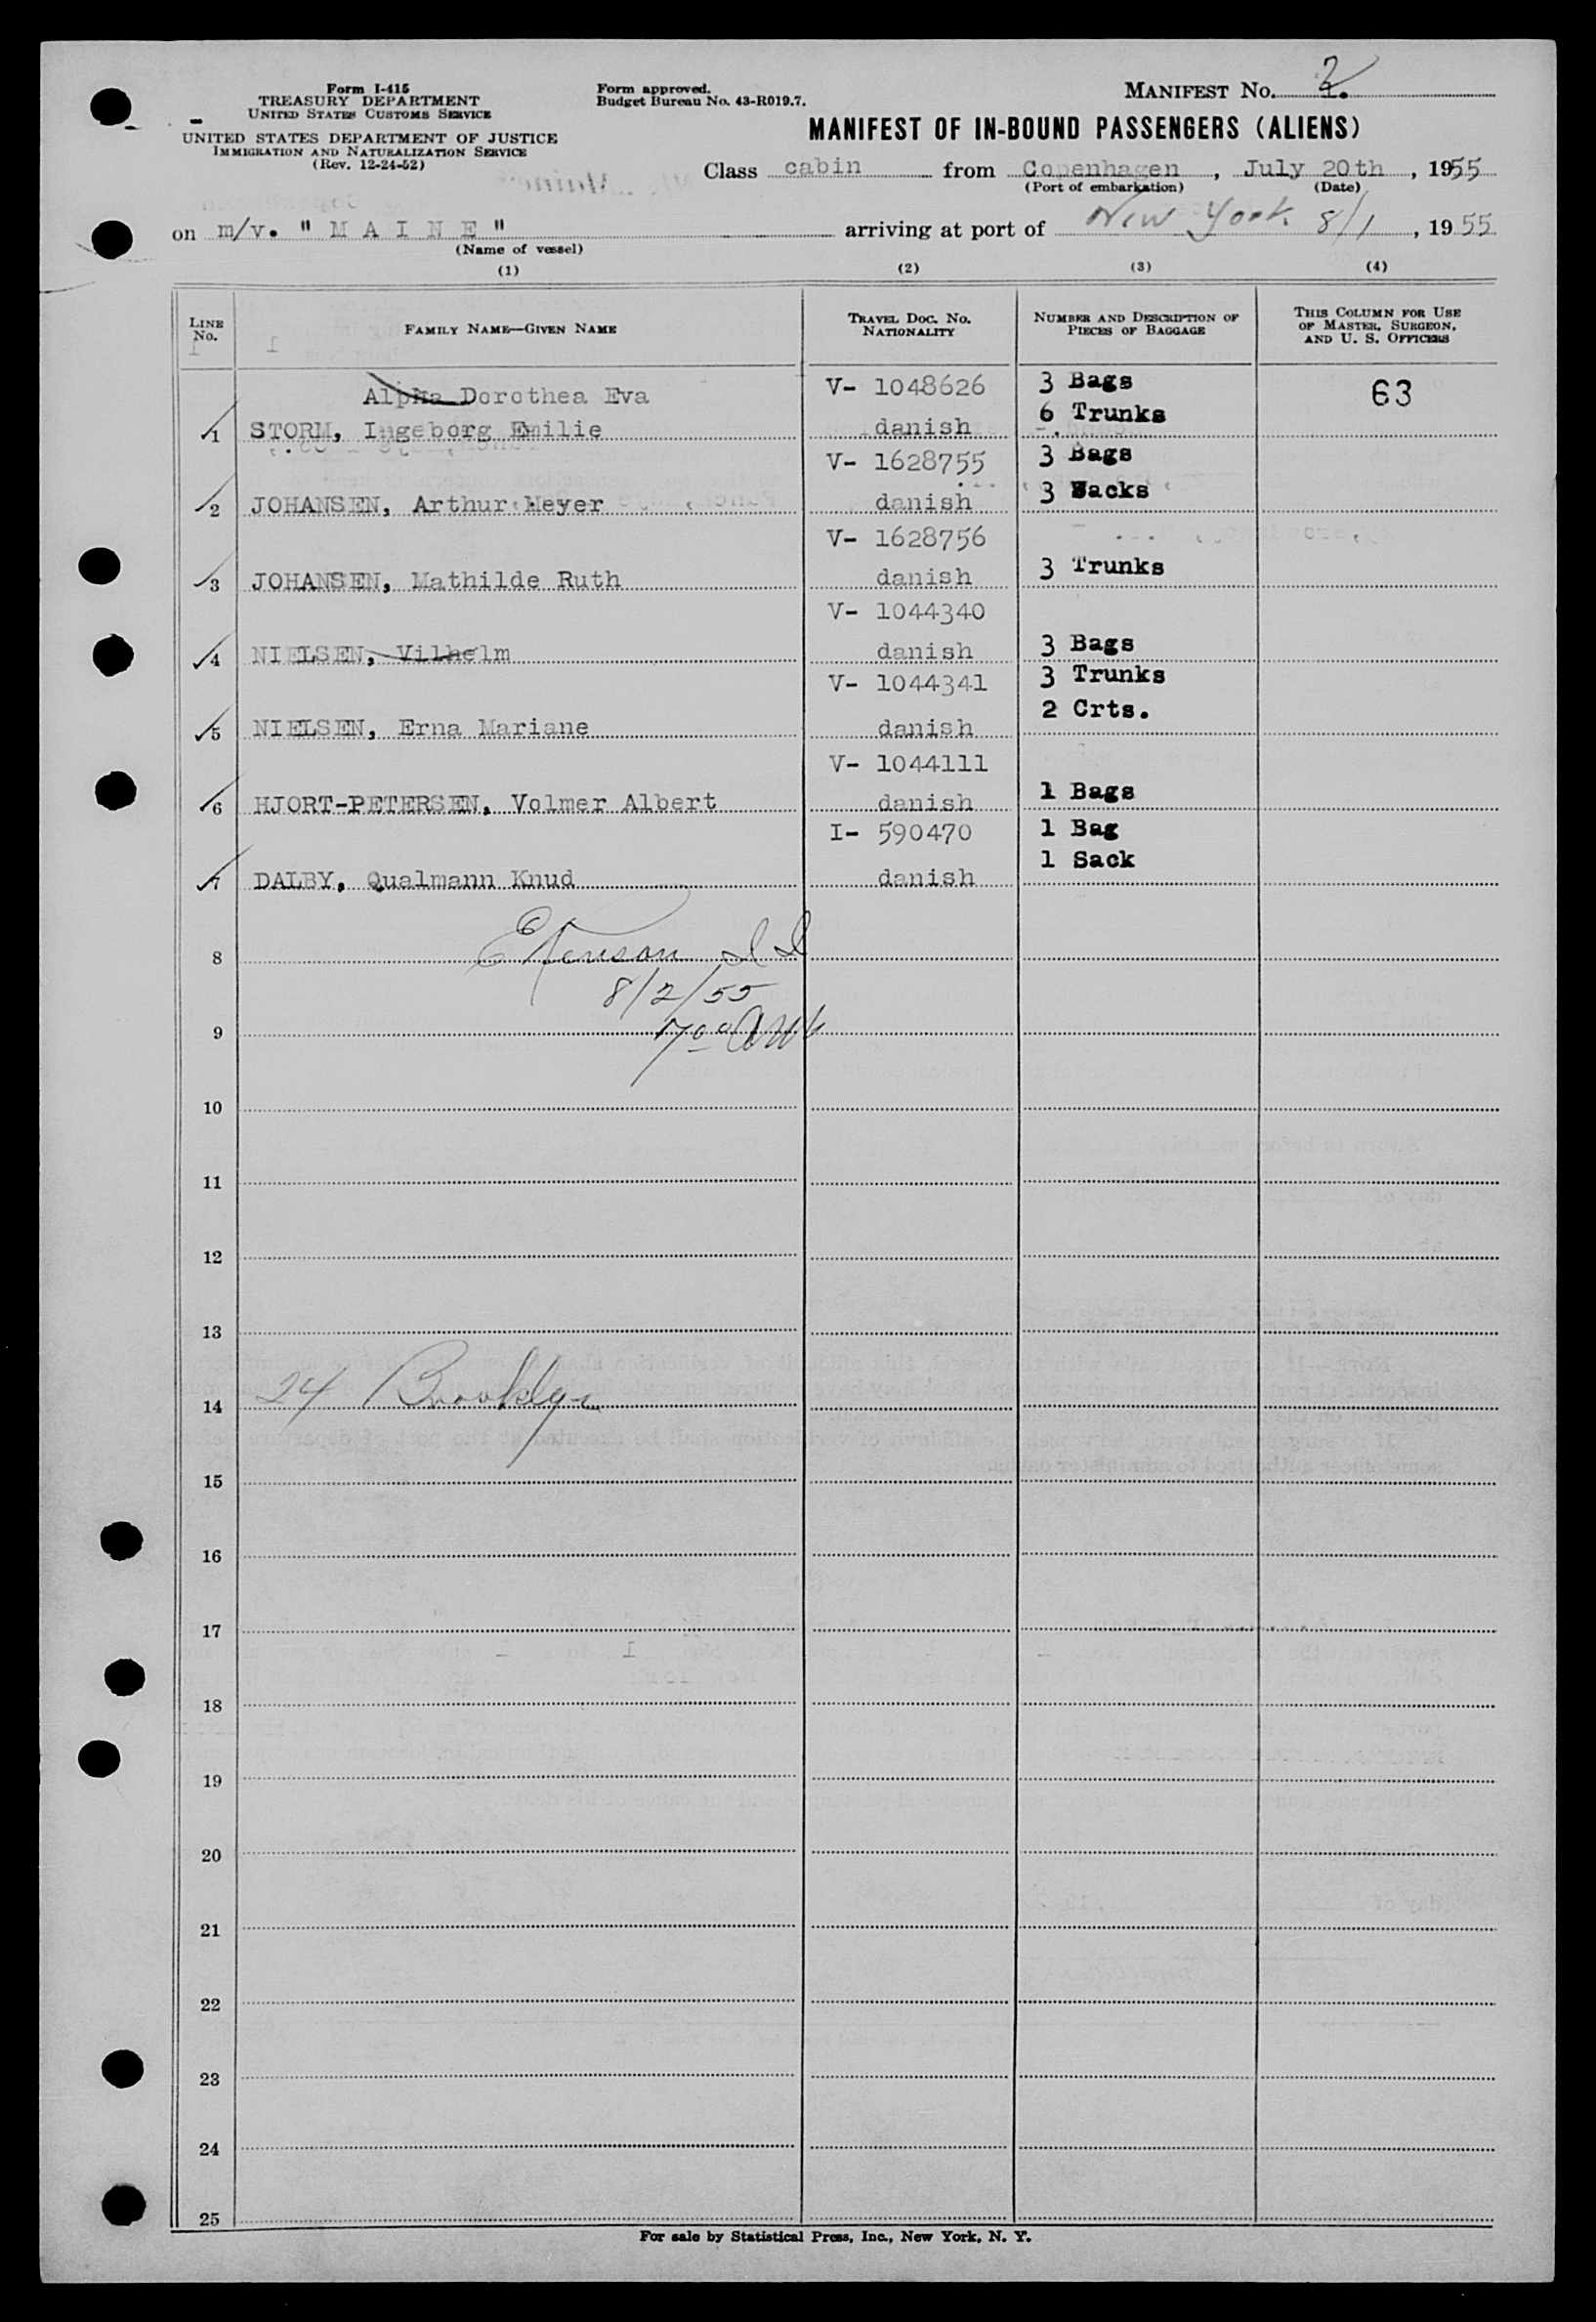 Form I-415
TREASURY DEPARTMENT
UNITED STATES CUSTOMS SERVICE
UNITED STATES DEPARTMENT OF JUSTICE
IMMIGRATION AND NATURALIZATION SERVICE
(Rev. 12-24-52)
Form approved.
Budget Bureau No. 43-R019.7.
MANIFEST No. 2
MANIFEST OF IN-BOUND PASSENGERS (ALIENS)
Class cabin from Copenhagen, July 20th, 1955
(Port of embarkation) (Date)
on m/v. " M A I N E " arriving at port of New York 8/1, 1955
(Name of vessel)
(1) (2) (3) (4)
LINE No. FAMILY NAME—GIVEN NAME TRAVEL DOC. NO. NATIONALITY NUMBER AND DESCRIPTION OF PIECES OF BAGGAGE THIS COLUMN FOR USE OF MASTER, SURGEON, AND U. S. OFFICERS
Alpha Dorothea Eva V- 1048626 3 Bags 63
1 STORM, Ingeborg Emilie danish 6 Trunks
V- 1628755 3 Bags
2 JOHANSEN, Arthur Meyer danish 3 Sacks
V- 1628756
3 JOHANSEN, Mathilde Ruth danish 3 Trunks
V- 1044340
4 NIELSEN, Vilhelm danish 3 Bags
V- 1044341 3 Trunks
5 NIELSEN, Erna Mariane danish 2 Crts.
V- 1044111
6 HJORT-PETERSEN, Volmer Albert danish 1 Bags
I- 590470 1 Bag
7 DALBY, Qualmann Knud danish 1 Sack
8
8/2/55
9 7 00
10
11
12
13
14 24 Brooklyn
15
16
17
18
19
20
21
22
23
24
25
For sale by Statistical Press, Inc., New York, N. Y.